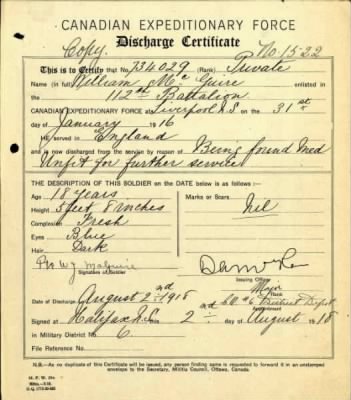 CANADIAN EXPEDITIONARY FORCE
Copy Discharge Certificate No. 1522
This is to Certify that No. 734029 (Rank) Private
Name (in full) William Mc Guire enlisted in
the 112th Battalion
CANADIAN EXPEDITIONARY FORCE at Liverpool N.S on the 31st
day of January 1916
He served in England
and is now discharged from the service by reason of Being found Med
Unfit for further service
THE DESCRIPTION OF THIS SOLDIER on the DATE below is as follows :—
Age 18 Years
Height 5 feet 8 inches
Complexion Fresh
Eyes Blue
Hair Dark
Marks or Scars
Nil
Pte W J McGuire
Signature of Soldier
Major
Rank
Date of Discharge August 2nd 1918
No 6 District Depot
Appointment
Signed at Halifax N.S. this 2nd day of August 1918
in Military District No. 6
File Reference No.
N.B.—As no duplicate of this Certificate will be issued, any person finding same is requested to forward it in an unstamped
envelope to the Secretary, Militia Council, Ottawa, Canada.